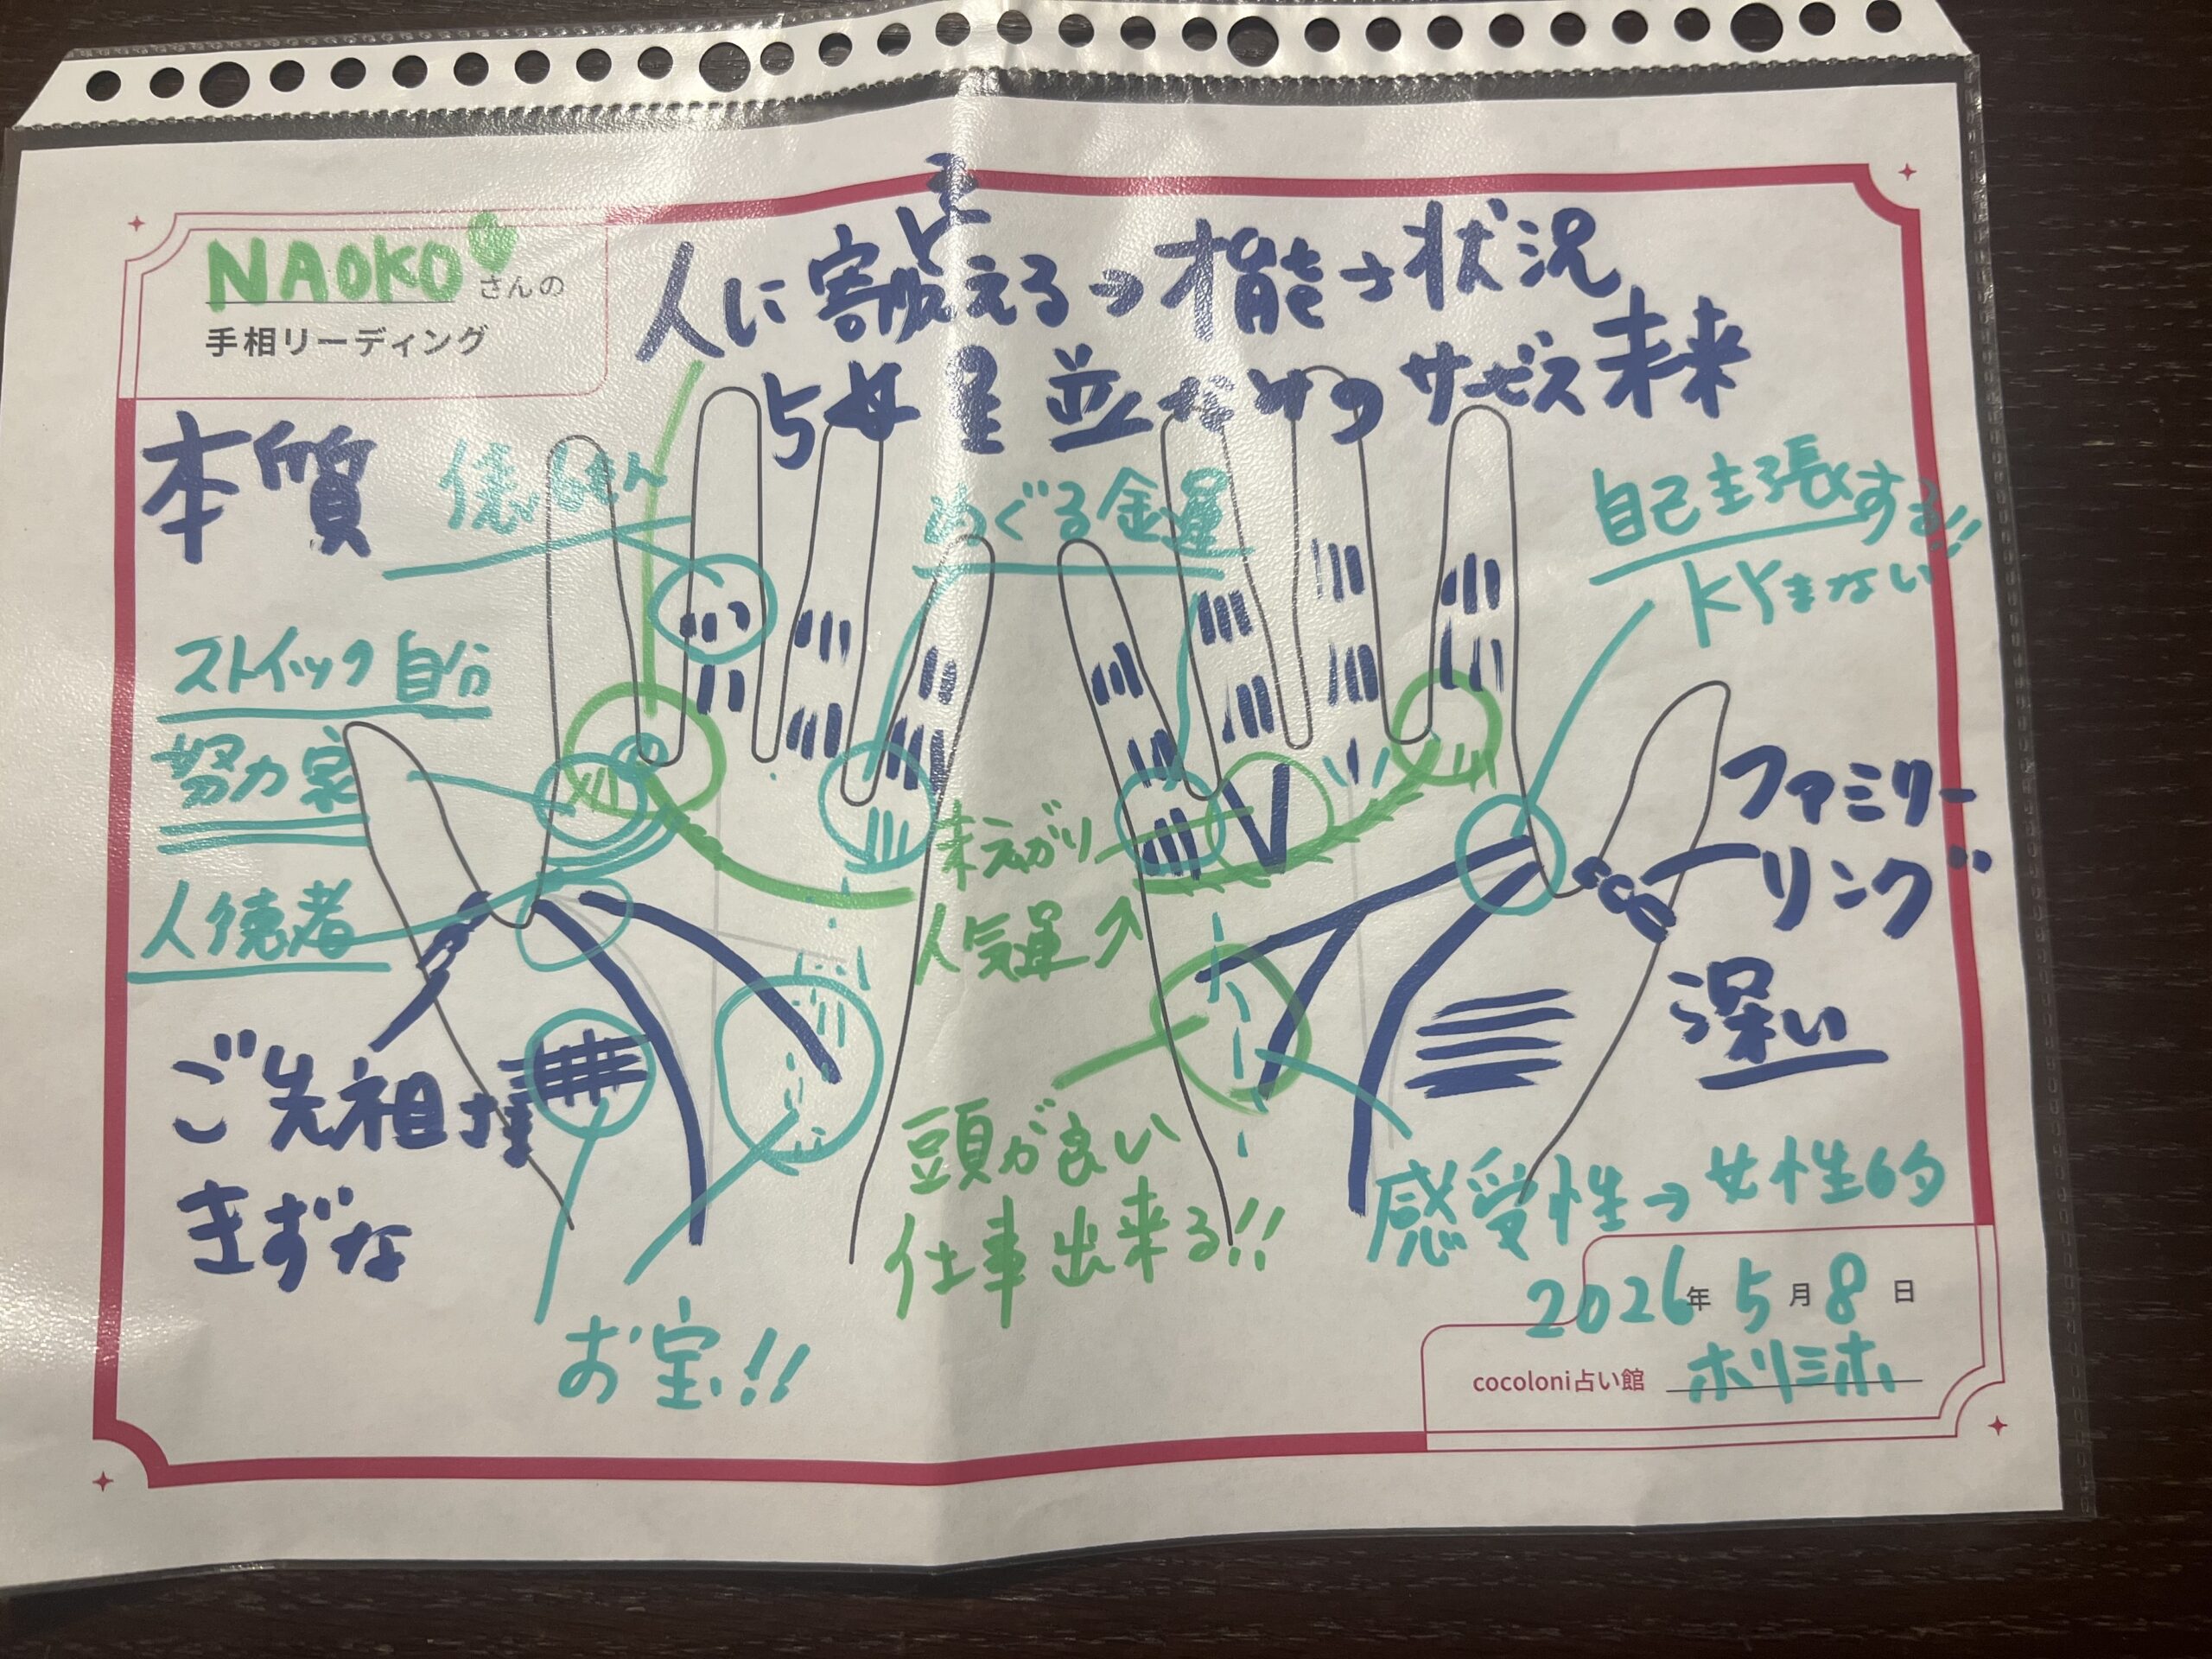 NAOKO さんの
手相リーディング
人に寄り添える→才能
状況
5女星並だけのサービス
未来
本質
めぐる金運
自己主張する!!
KYまない
ストイック 自分
努力家
人徳者
ファミリー
リング
深い
末広がり
人気運↗
ご先祖様
きずな
頭が良い
仕事出来る!!
感受性→女性的
お宝!!
2026年 5月 8日
cocoloni占い館 ホリミホ